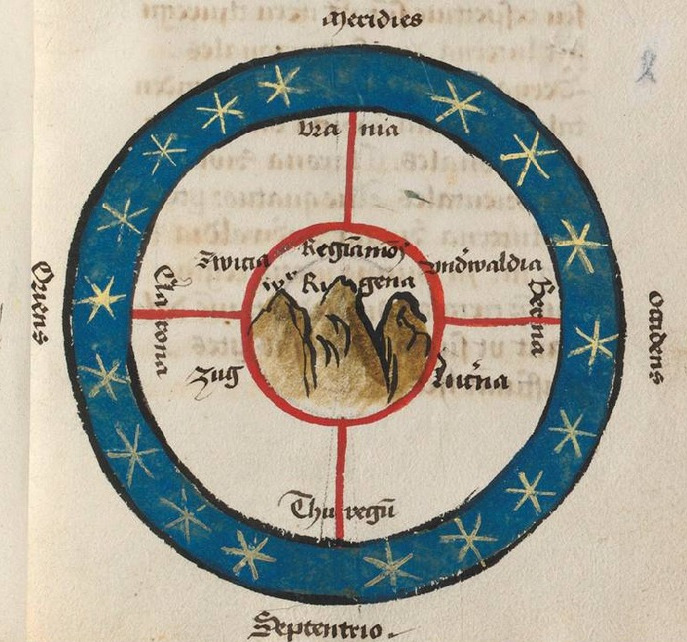 Meridies
Ura nia
Switia
Regiamo᷒
Undwaldia
Ru gena
Oriens
Clarona
Berna
Occidens
Zug
Lucn̄a
Thu regū
Septentrio.